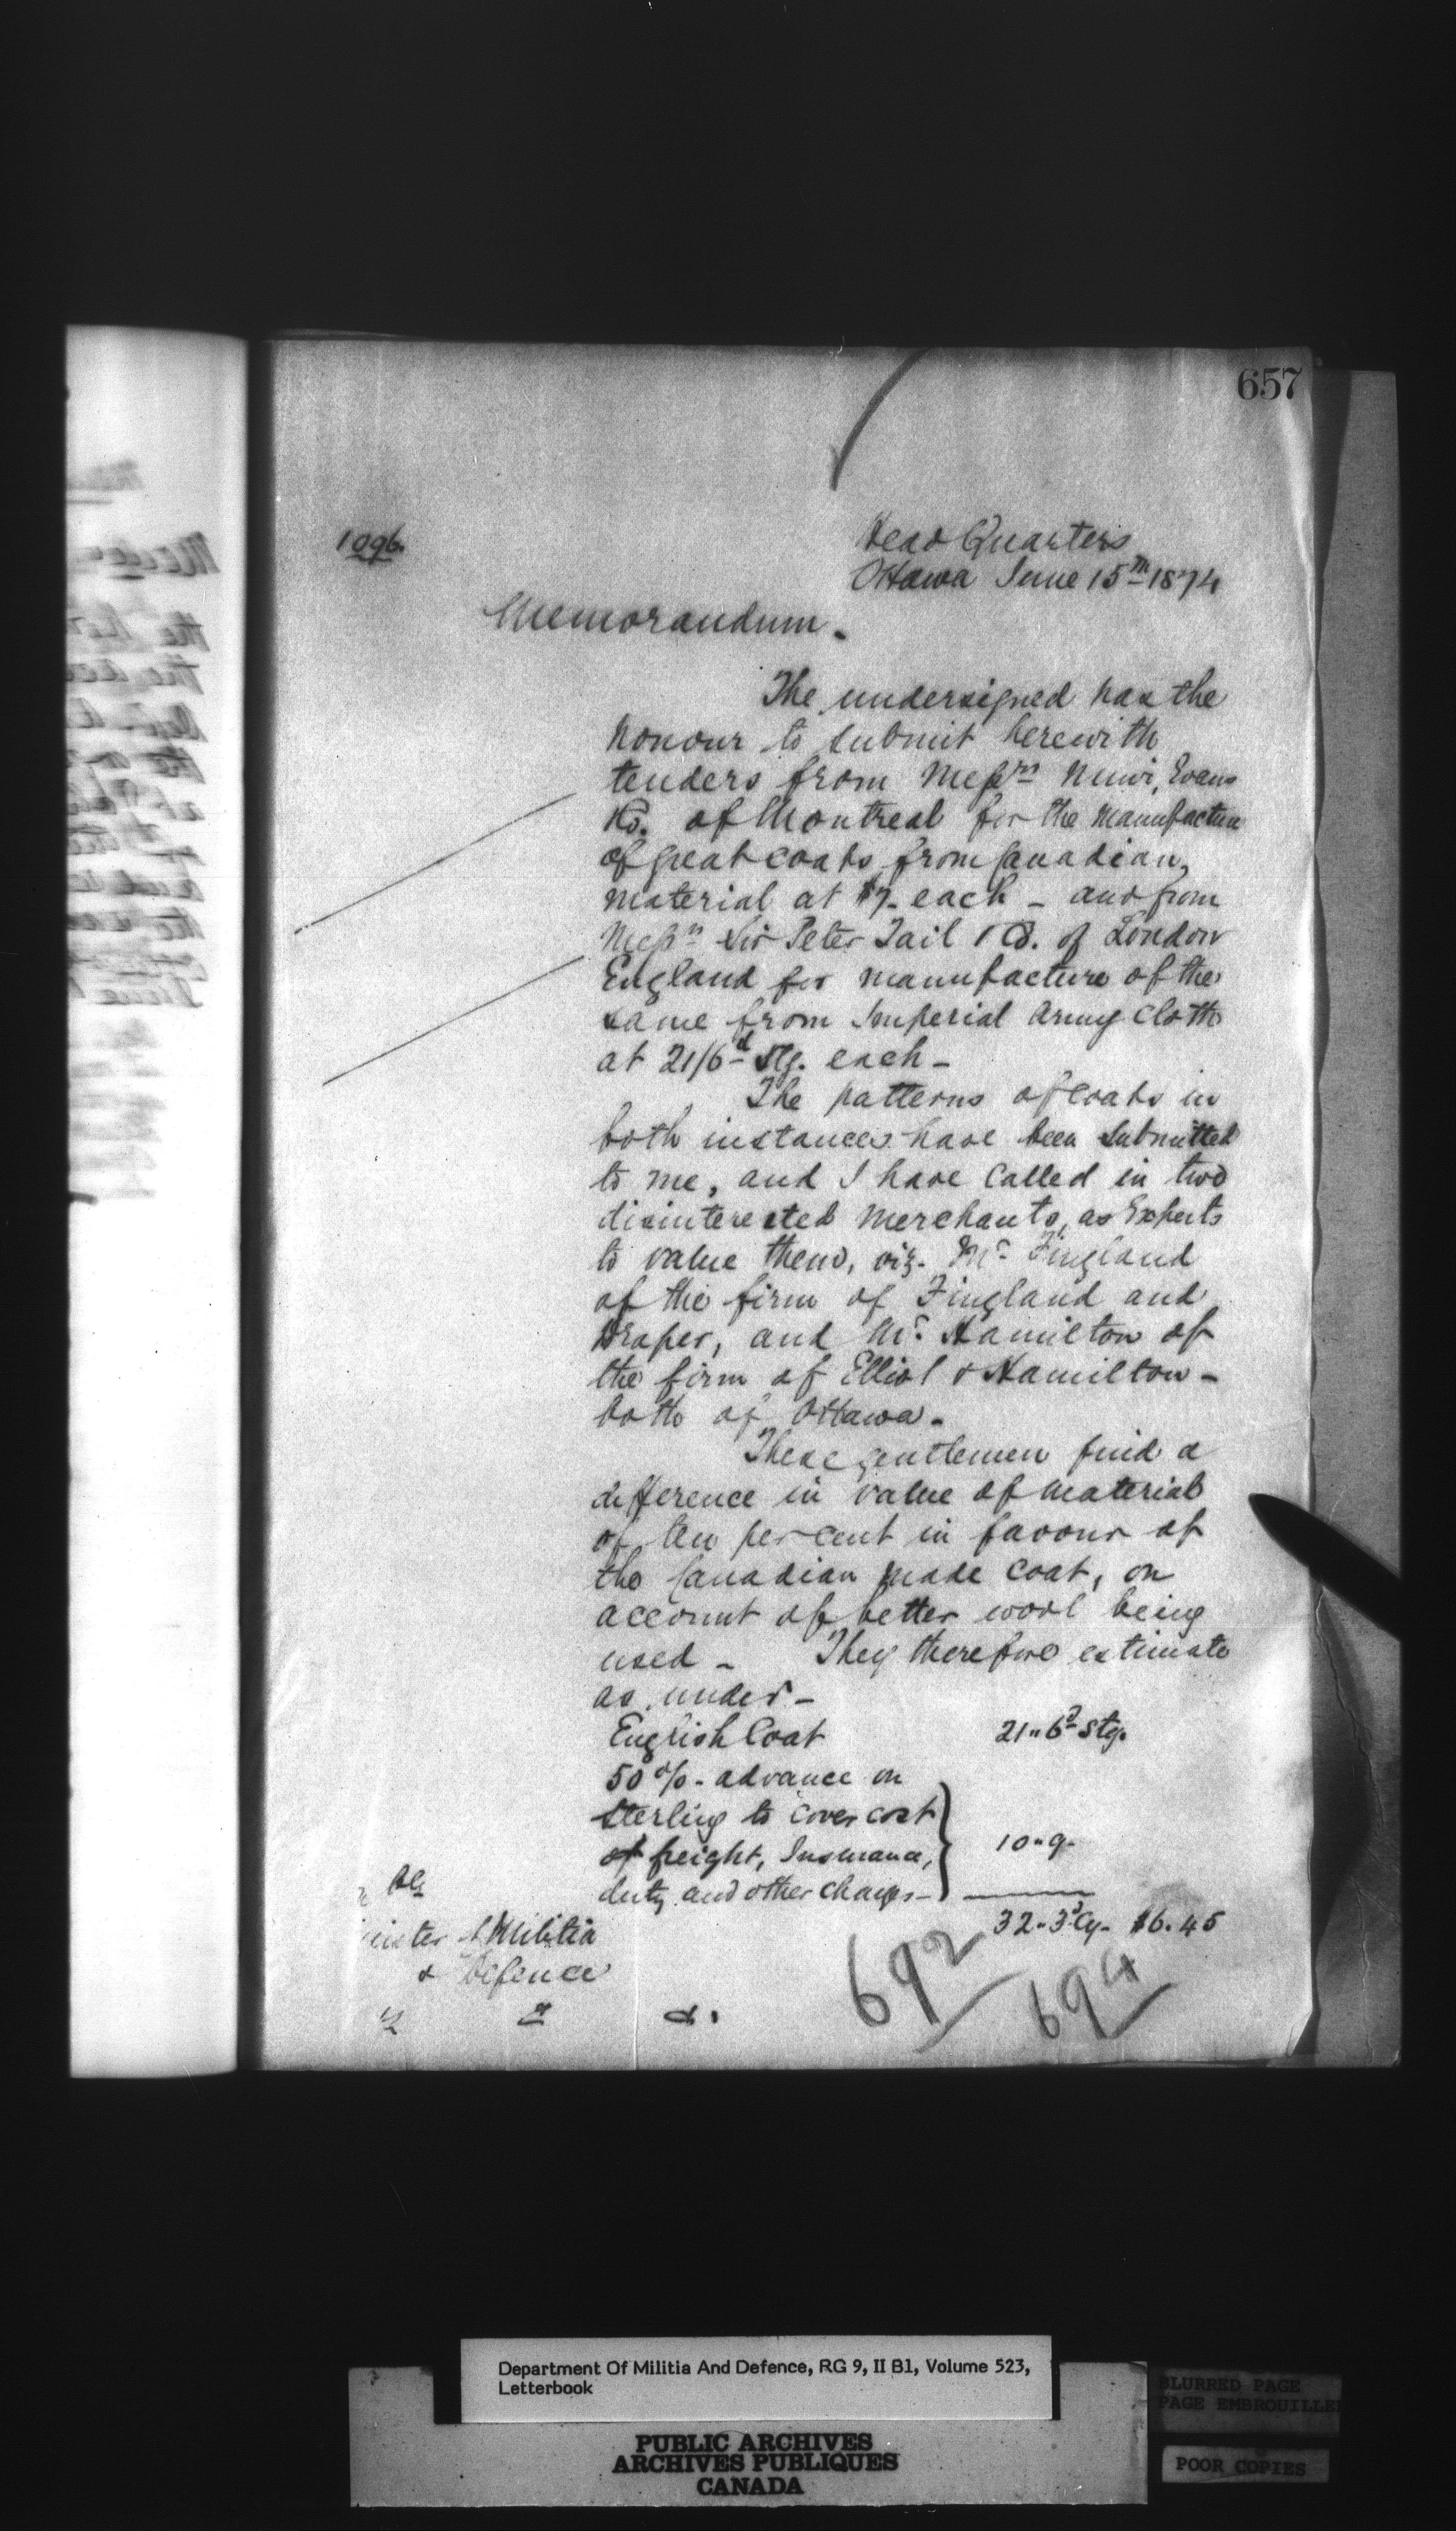 657
1096.
Head Quarters
Ottawa June 15th 1874
Memorandum.
The undersigned has the
honour to submit herewith
tenders from Messrs Muir, Evans
& Co. of Montreal for the manufacture
of great coats from Canadian
material at $7. each - and from
Messrs Sir Peter Tait & Co. of London
England for manufacture of the
same from Imperial Army Cloth
at 21/6d Stg. each -
The patterns of coats in
both instances have been submitted
to me, and I have called in two
disinterested merchants, as Experts
to value them, viz. Mr. Fingland
of the firm of Fingland and
Draper, and Mr. Hamilton of
the firm of Elliot & Hamilton -
both of Ottawa.
These gentlemen find a
difference in value of material
of ten per cent in favour of
the Canadian made coat, on
account of better wool being
used - They therefore estimate
as under -
English Coat 21" 6d Stg.
50 % - advance on
Sterling to cover cost
of freight, Insurance, 10" 9.
duty and other charges -
32" 3d Cy. $6.45
ble
inister of Militia
& Defence
692
694
Department Of Militia And Defence, RG 9, II B1, Volume 523,
Letterbook
PUBLIC ARCHIVES
ARCHIVES PUBLIQUES
CANADA
BLURRED PAGE
PAGE EMBROUILLE
POOR COPIES